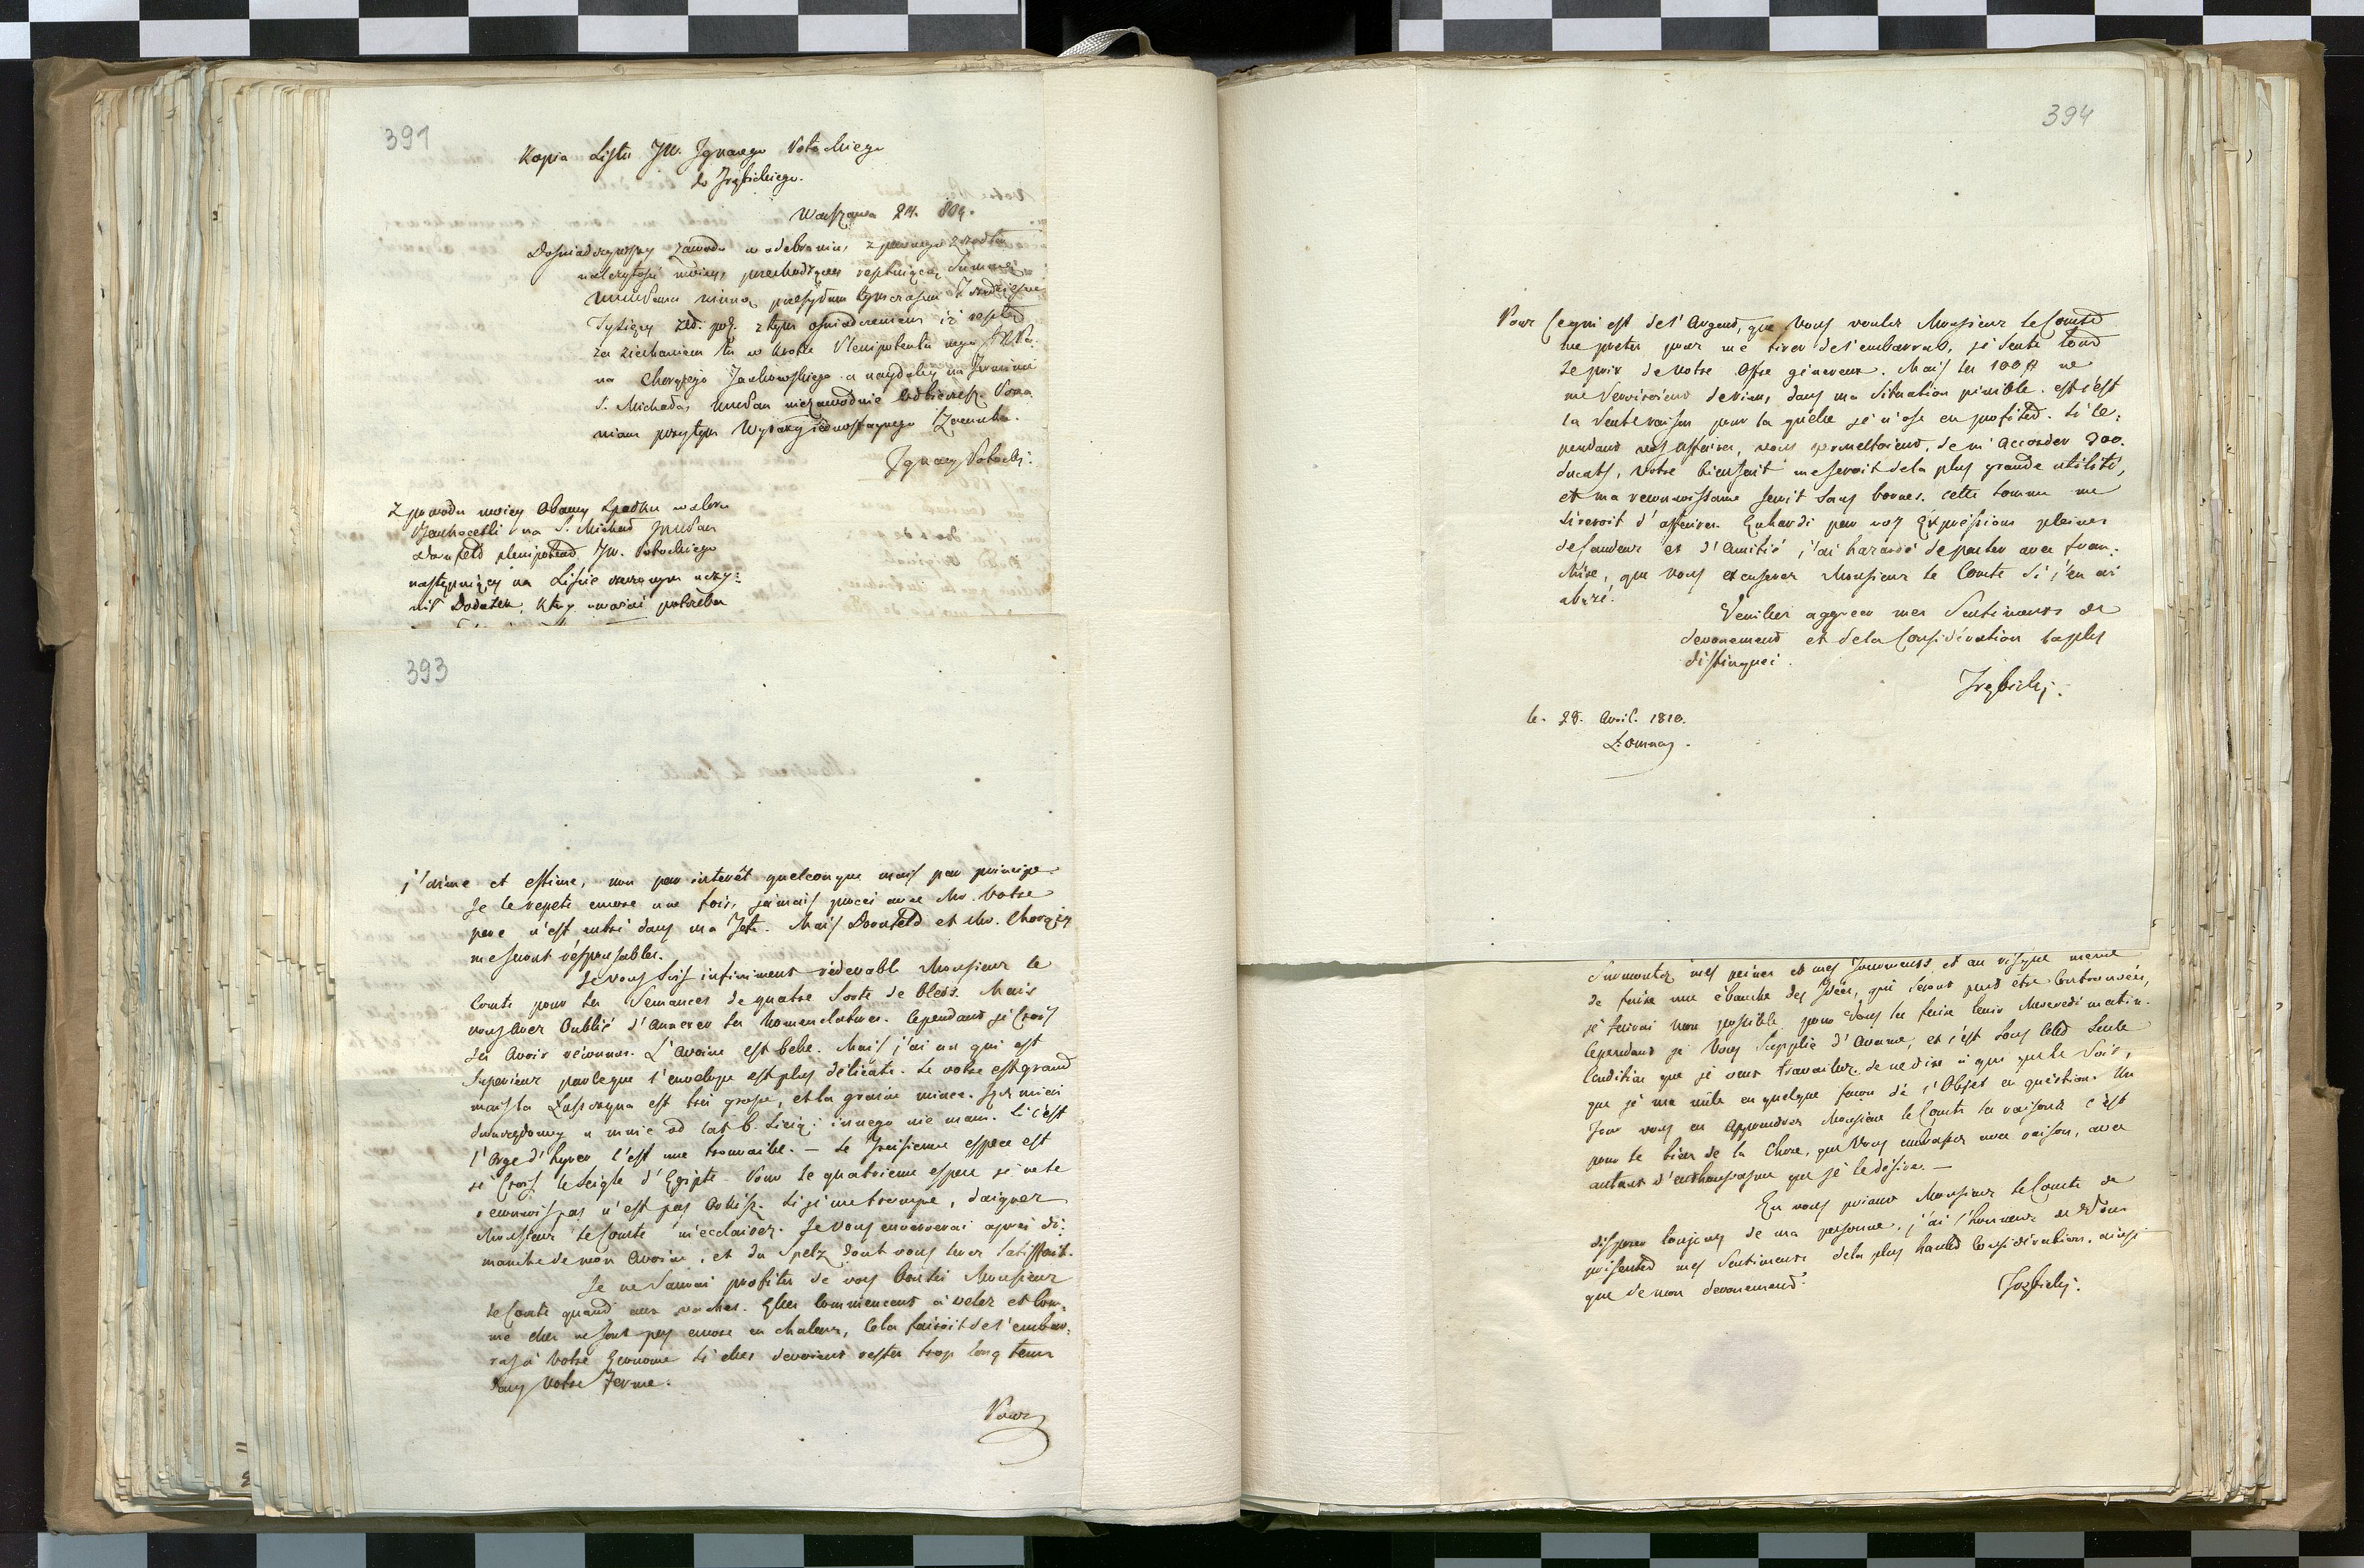 391
Kopia Listu JW. Ignacego Potockiego
do Trębickiego.
Warszawa 24. 809.
Doświadczywszy zawodu w odebraniu, z pewnego źrodła
należytości moiey, przechodzącey resztuiącą Summę
WMWPanu winną, przesyłam tymczasem
Tysięcy Zł. pol. z tym oświadczeniem iż resztę
za ziechaniem tu w krotce Plenipotenta mego JP.
na Chorążego Jachowskiego a naydaley na Termin
S. Michała, WMWPan niezawodnie odbierzesz. Pona
wiam przytym Wyrazy iednostaynego Szacunku.
Ignacy Potocki.
Z powodu moiey Obawy Spadku waloru
na S. Michał JMWPan
Dornfeld plenipotent JW. Potockiego
następuiący na Liście rzeczonym uczy:
nił Dodatek, ktory uważać potrzeba
393
j'aime et estime, non par interêt quelconque mais par principe.
Je le repete encore une fois, jamais procès avec Mr. Votre
pere n'est entré dans ma Tete. Mais Dornfeld et Mr. Chorąży
me seront résponsables.
Je vous suis infiniment rédevable Monsieur le
Comte pour les Semances de quatre Sorte de bleds. Mais
vous avez Oublié d'annexer les Nomenclatures. Cependant je crois
les avoir réconnus. L'avoine est belle. Mais j'ai un qui est
Superieur parceque l'envelope est plus délicate. Le votre est grand
mais la Łuszczyna est très grosse, et la graine mince. Jęczmień
dwurzędowy u mnie od lat 6. sieią i innego nie mam. Si c'est
l'Orge d'hyver c'est une trouvaille. — Le Troisieme espece est
je crois le Seigle d'Egipte. Pour le quatrieme espece je ne le
reconnois pas n'est pas Orkisz. Si je me trompe, daignez
Monsieur le Comte m'eclairer. Je vous enverrerai après di:
manche de mon avoine, et du Spelz dont vous serez satisfait.
Je ne Saurai profiter de vos bontés Monsieur
le Comte quand aux vaches. Elles commencent à veler et com:
me elles ne sont pas encore en chaleur, Cela fairoit de l'embar:
ras à Votre Econome si elles devoient rester trop long tems
dans Votre Ferme.
Pour
394
Pour Ce qui est de l'Argent, que Vous voulez Monsieur le Comte
me preter pour me tirer de l'embarras, je Sents tout
le prix de Votre Offre généreux. Mais les 100 # ne
me Serviroient de rien, dans ma Situation pénible. est c'est
la Seule raison pour la quelle je n'ose en profiter. Si ce:
pendant vos Affaires, vous permettoient, de m'Accorder 200.
ducats, Votre bienfait me seroit de la plus grande utilité,
et ma reconnoissance seroit Sans bornes. cette Somme me
tireroit d'affaires. Enhardi par vos Expréssions pleines
de Candeur et d'Amitié, j'ai hazardé de parler avec fran:
chise, que Vous excuserez Monsieur le Comte si j'en ai
abuzé.
Veuillez aggréer mes Sentiments de
devouement et de la Considération la plus
distinguée.
Trębicki.
le. 28. Avril. 1810.
Łomna.
Surmonter mes peines et mes Tourments, et au risque meme
de faire une ébauche des Idées, qui seront peut être Controuvées,
je ferai mon possible pour Vous les faire tenir Mercredi matin.
Cependant je Vous Supplie d'avance, et c'est Sous cette Seule
Condition que je veux travailler, de ne dire à qui que ce Soit,
que je me mele en quelque facon de l'Objet en question. Un
Jour vous en Apprendrez Monsieur le Comte la raison. c'est
pour le bien de la Chose, que Vous embrasser avec raison, avec
autant d'enthousiasme que je le désire. —
En vous priant Monsieur le Comte de
disposer toujours de ma personne, j'ai l'honneur de Vous
présenter mes Sentiments de la plus haute Considération, ainsi
que de mon devouement.
Trębicki.